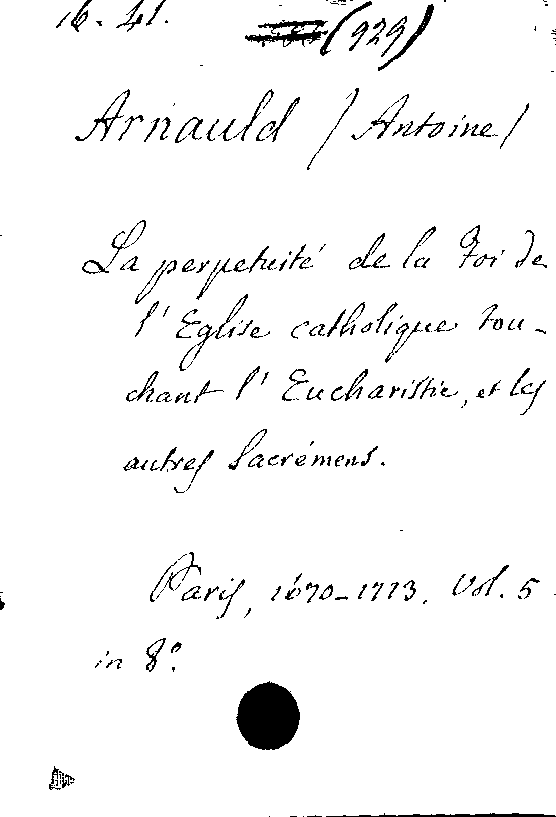 16. 41.
(929)
Arnauld (Antoine)
La perpetuité de la Foi de
l'Eglise catholique tou-
chant l'Eucharistie, et les
autres Sacrémens.
Paris, 1670-1713. Vol. 5
in 8º.